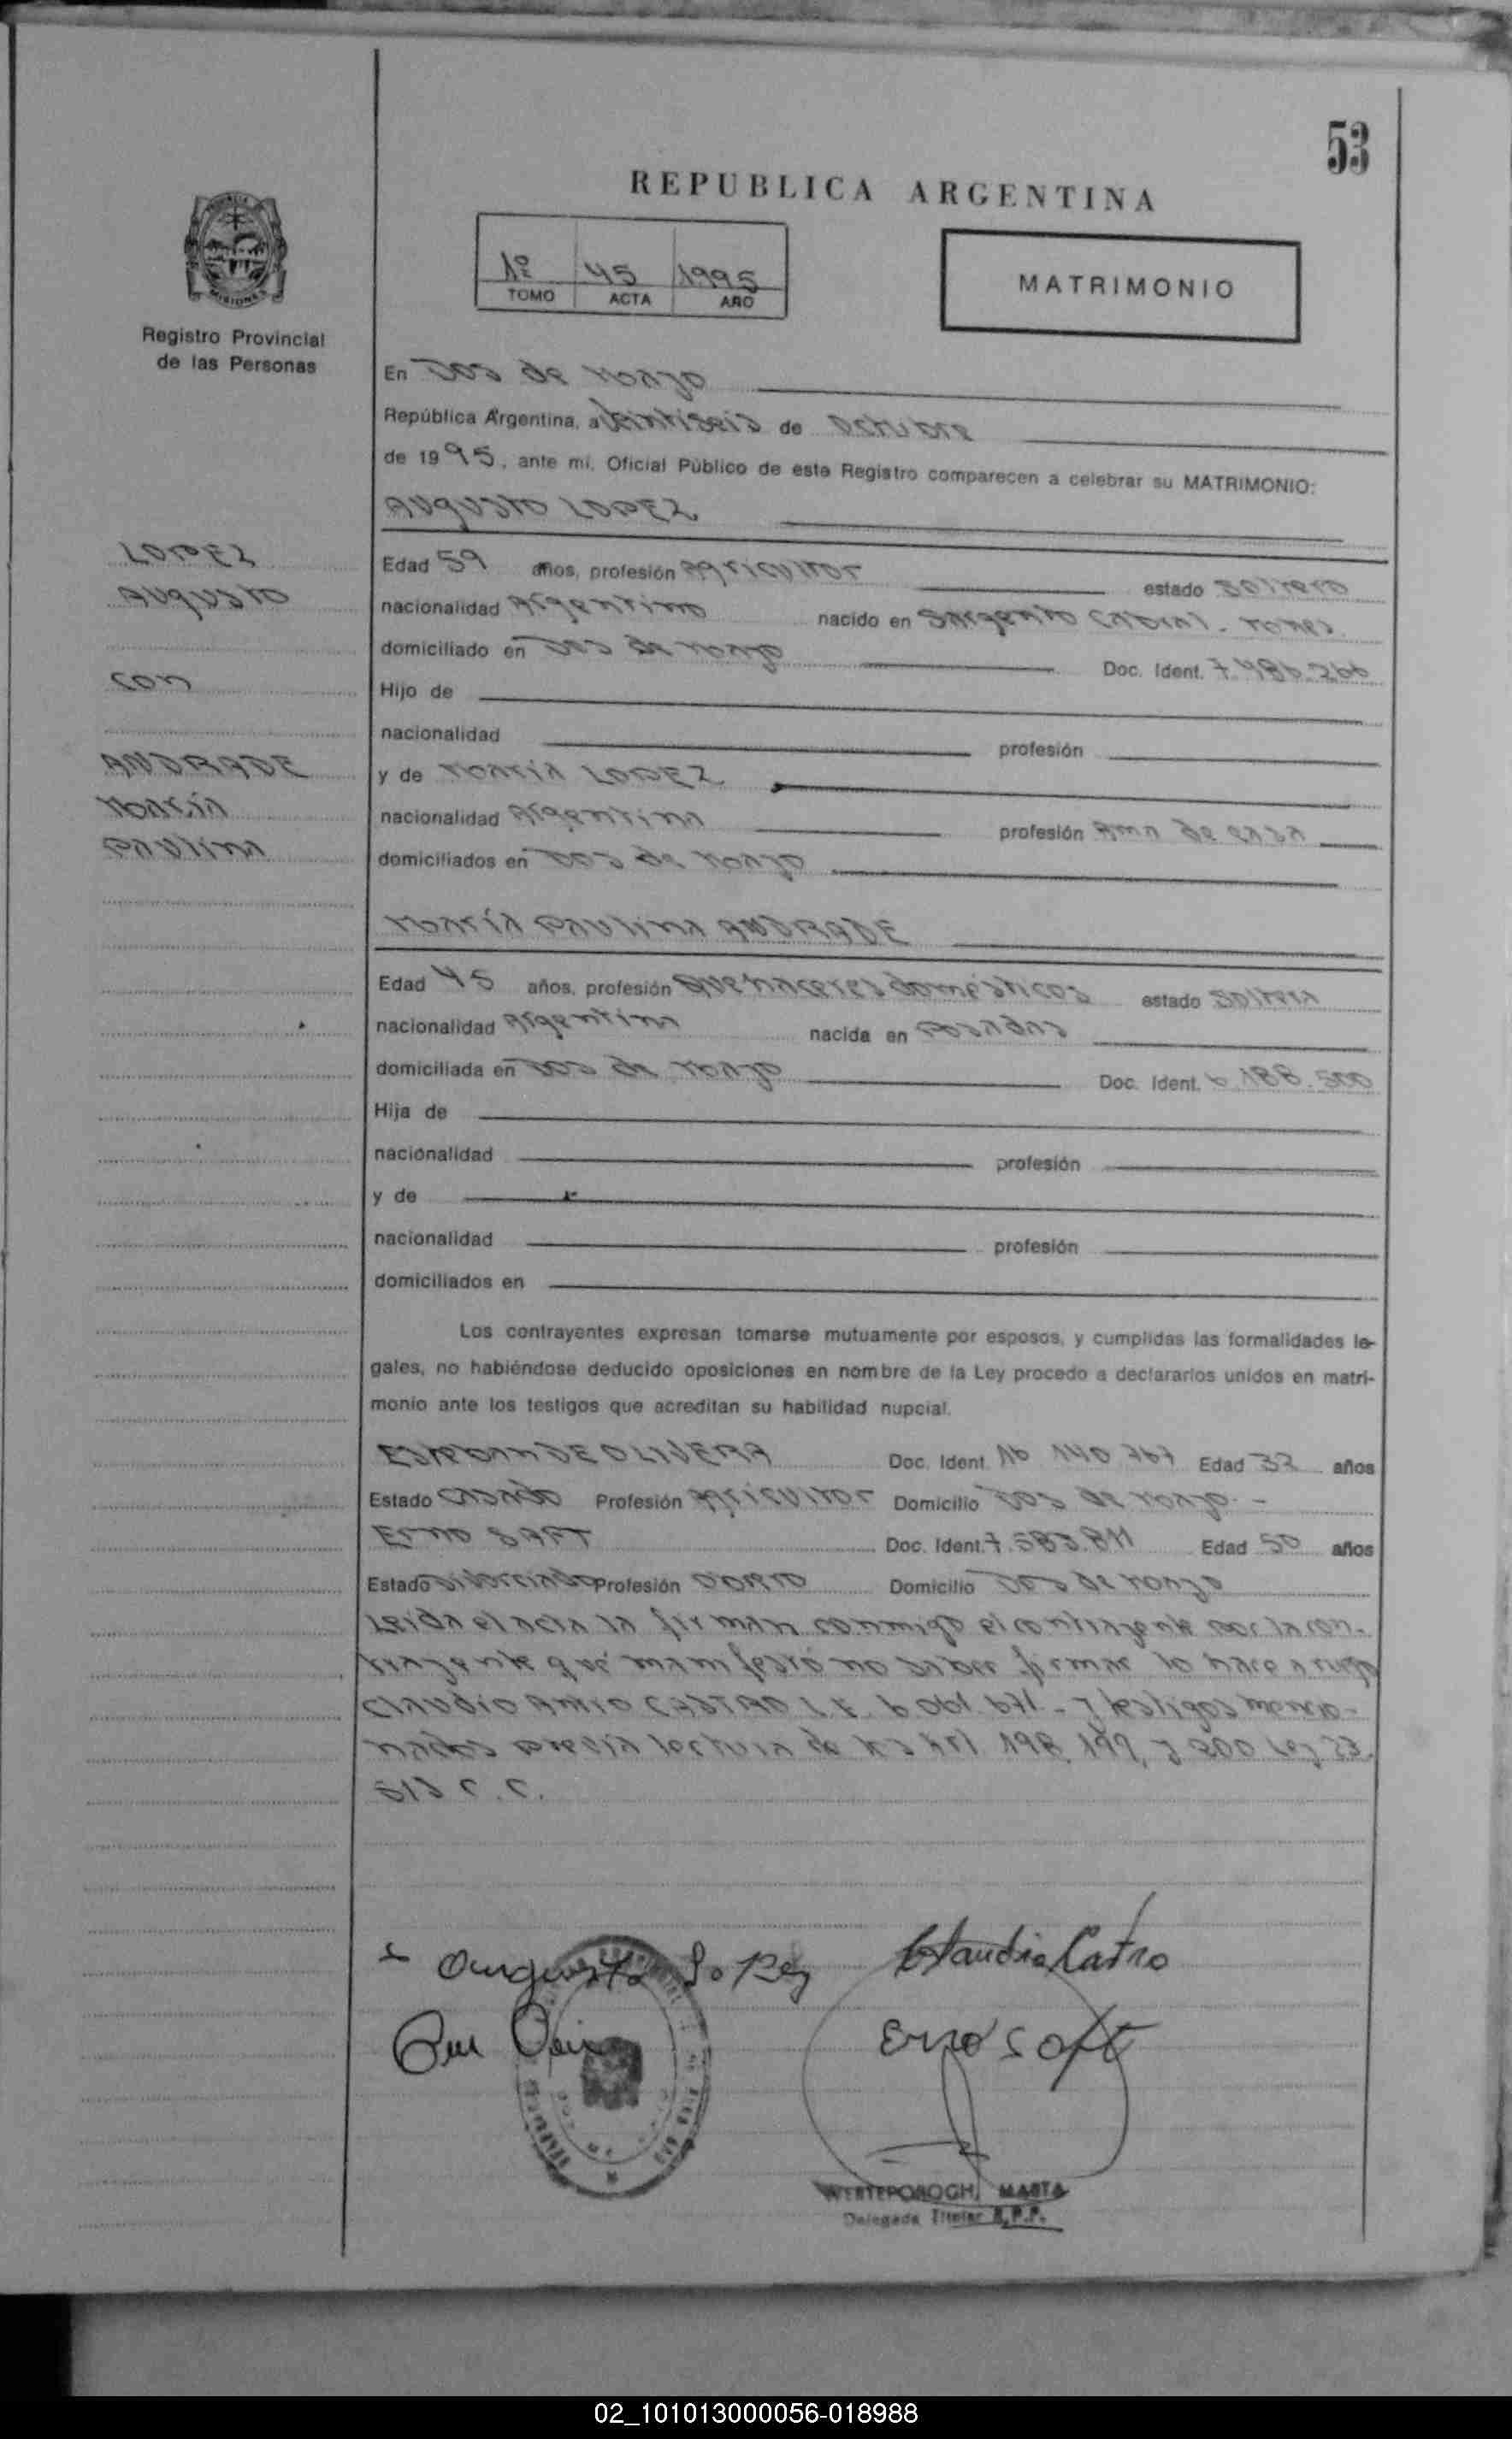 53
REPUBLICA ARGENTINA
1º 45 1995
TOMO ACTA AÑO
MATRIMONIO
MISIONES
Registro Provincial
de las Personas
LOPEZ
AUgUSTO
con
ANDRADE
MARíA
PAUlinA
En Dos de MAYO
República Argentina, a Veintiseis de Octubre
de 1995, ante mí, Oficial Público de este Registro comparecen a celebrar su MATRIMONIO:
AUgUSTO LOPEZ
Edad 59 años, profesión Agricultor estado Soltero
nacionalidad Argentino nacido en Sargento CABrAl - Mnes.
domiciliado en Dos de MAYO Doc. Ident. 7.486.266
Hijo de
nacionalidad profesión
y de MAríA LOPEZ
nacionalidad ArgentinA profesión AmA de CASA
domiciliados en Dos de MAYO
MAríA PAUlinA ANDRADE
Edad 45 años, profesión QUehAceres domésticos estado SolterA
nacionalidad ArgentinA nacida en PosAdAs
domiciliada en Dos de MAYO Doc. Ident. 6.188.500
Hija de
nacionalidad profesión
y de
nacionalidad profesión
domiciliados en
Los contrayentes expresan tomarse mutuamente por esposos, y cumplidas las formalidades le-
gales, no habiéndose deducido oposiciones en nombre de la Ley procedo a declararlos unidos en matri-
monio ante los testigos que acreditan su habilidad nupcial.
ESTEBAN DE OLIVERA Doc. Ident. 16.140.767 Edad 32 años
Estado CASAdo Profesión Agricultor Domicilio Dos de MAYO -
Erno SAFT Doc. Ident. 7.583.811 Edad 50 años
Estado DivorciAdo Profesión OBrero Domicilio Dos de MAYO
LeidA el ActA lA firmAn conmigo el contrAyente por lA con-
trAyente que mAnifestó no sAber firmAr lo hAce A ruego
ClAudio CASTRO L.E. 6.061.671 - y testigos mencio-
nAdos previA lecturA de los Art. 198, 199, y 200 Ley 23.
515 C.C.
Augusto Lopez
Claudio Castro
Erno Saft
MARTA
Delegada Titular R.P.P.
02_101013000056-018988